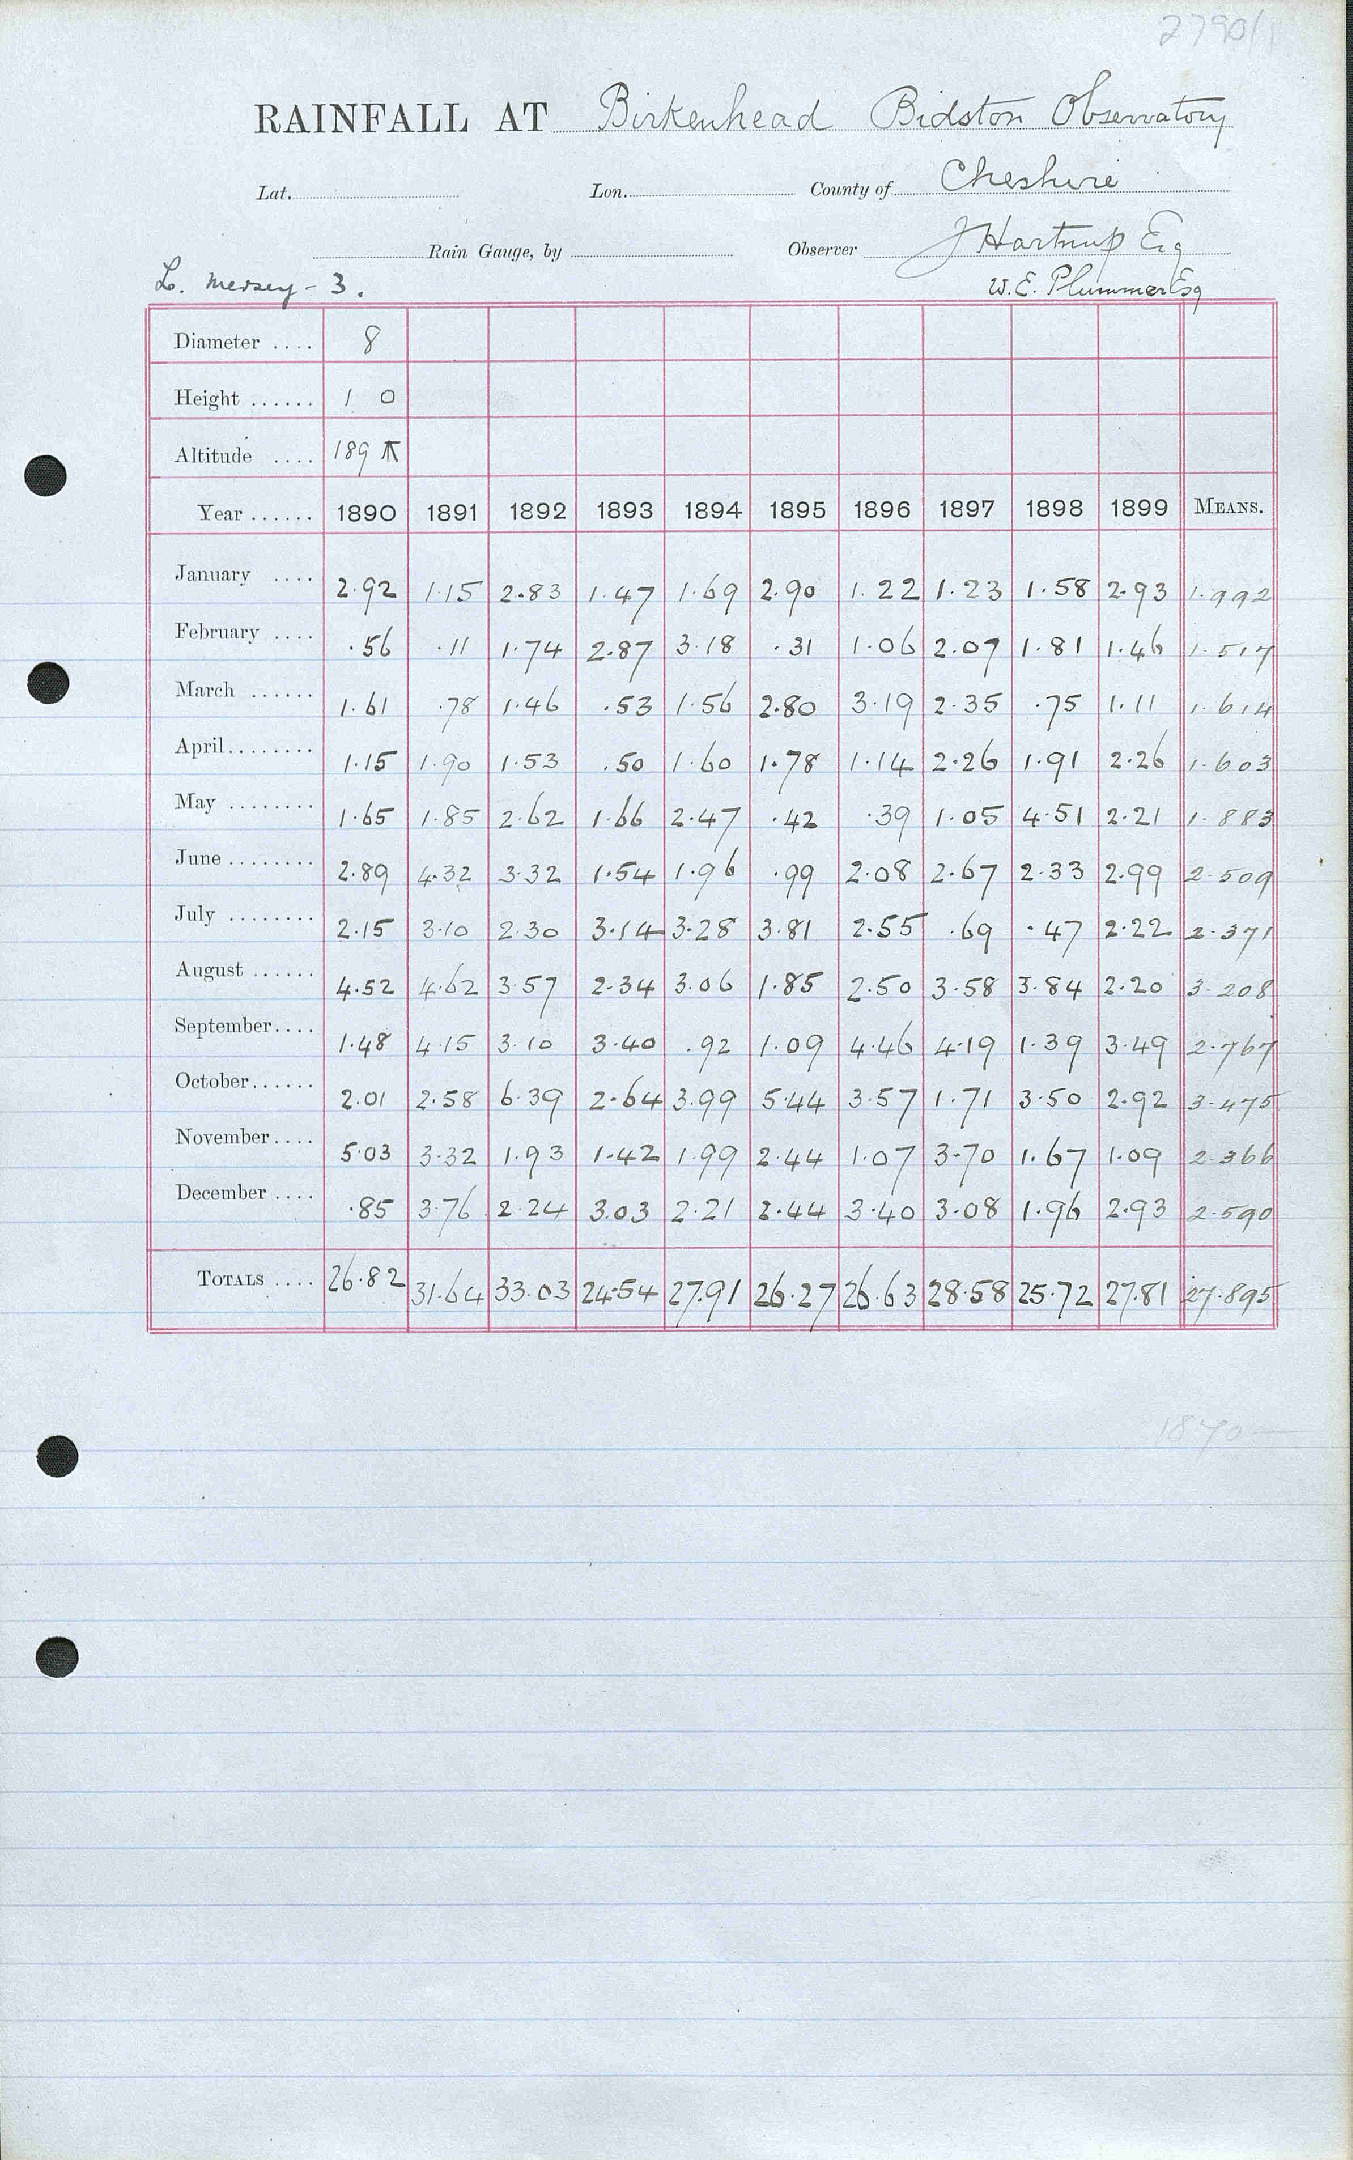 2790/1
RAINFALL AT Birkenhead Bidston Observatory
Lat. Lon. County of Cheshire
Rain Gauge, by Observer J Hartnup Esq
L. Mersey - 3. W.E. Plummer Esq
Diameter .... 8
Height ...... 1 0
Altitude .... 189
Year ...... 1890 1891 1892 1893 1894 1895 1896 1897 1898 1899 MEANS.
January .... 2.92 1.15 2.83 1.47 1.69 2.90 1.22 1.23 1.58 2.93 1.992
February .... .56 .11 1.74 2.87 3.18 .31 1.06 2.07 1.81 1.46 1.517
March ...... 1.61 .78 1.46 .53 1.56 2.80 3.19 2.35 .75 1.11 1.614
April ........ 1.15 1.90 1.53 .50 1.60 1.78 1.14 2.26 1.91 2.26 1.603
May ........ 1.65 1.85 2.62 1.66 2.47 .42 .39 1.05 4.51 2.21 1.883
June ........ 2.89 4.32 3.32 1.54 1.96 .99 2.08 2.67 2.33 2.99 2.509
July ........ 2.15 3.10 2.30 3.14 3.28 3.81 2.55 .69 .47 2.22 2.371
August ...... 4.52 4.62 3.57 2.34 3.06 1.85 2.50 3.58 3.84 2.20 3.208
September .... 1.48 4.15 3.10 3.40 .92 1.09 4.46 4.19 1.39 3.49 2.767
October ...... 2.01 2.58 6.39 2.64 3.99 5.44 3.57 1.71 3.50 2.92 3.475
November .... 5.03 3.32 1.93 1.42 1.99 2.44 1.07 3.70 1.67 1.09 2.366
December .... .85 3.76 2.24 3.03 2.21 2.44 3.40 3.08 1.96 2.93 2.590
TOTALS .... 26.82 31.64 33.03 24.54 27.91 26.27 26.63 28.58 25.72 27.81 27.895
1870 —